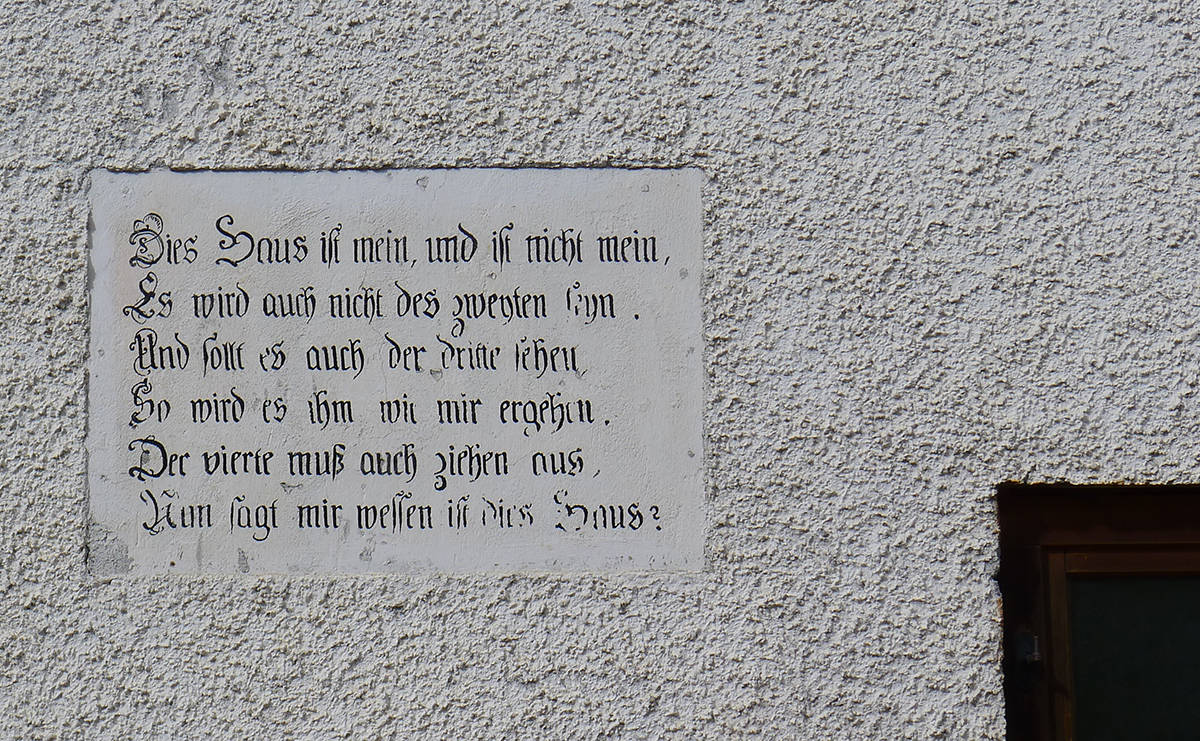 Dies Haus ist mein, und ist nicht mein,
Es wird auch nicht des zweyten seyn.
Und sollt es auch der dritte sehen,
So wird es ihm wie mir ergehen.
Der vierte muß auch ziehen aus,
Nun sagt mir wessen ist dies Haus?